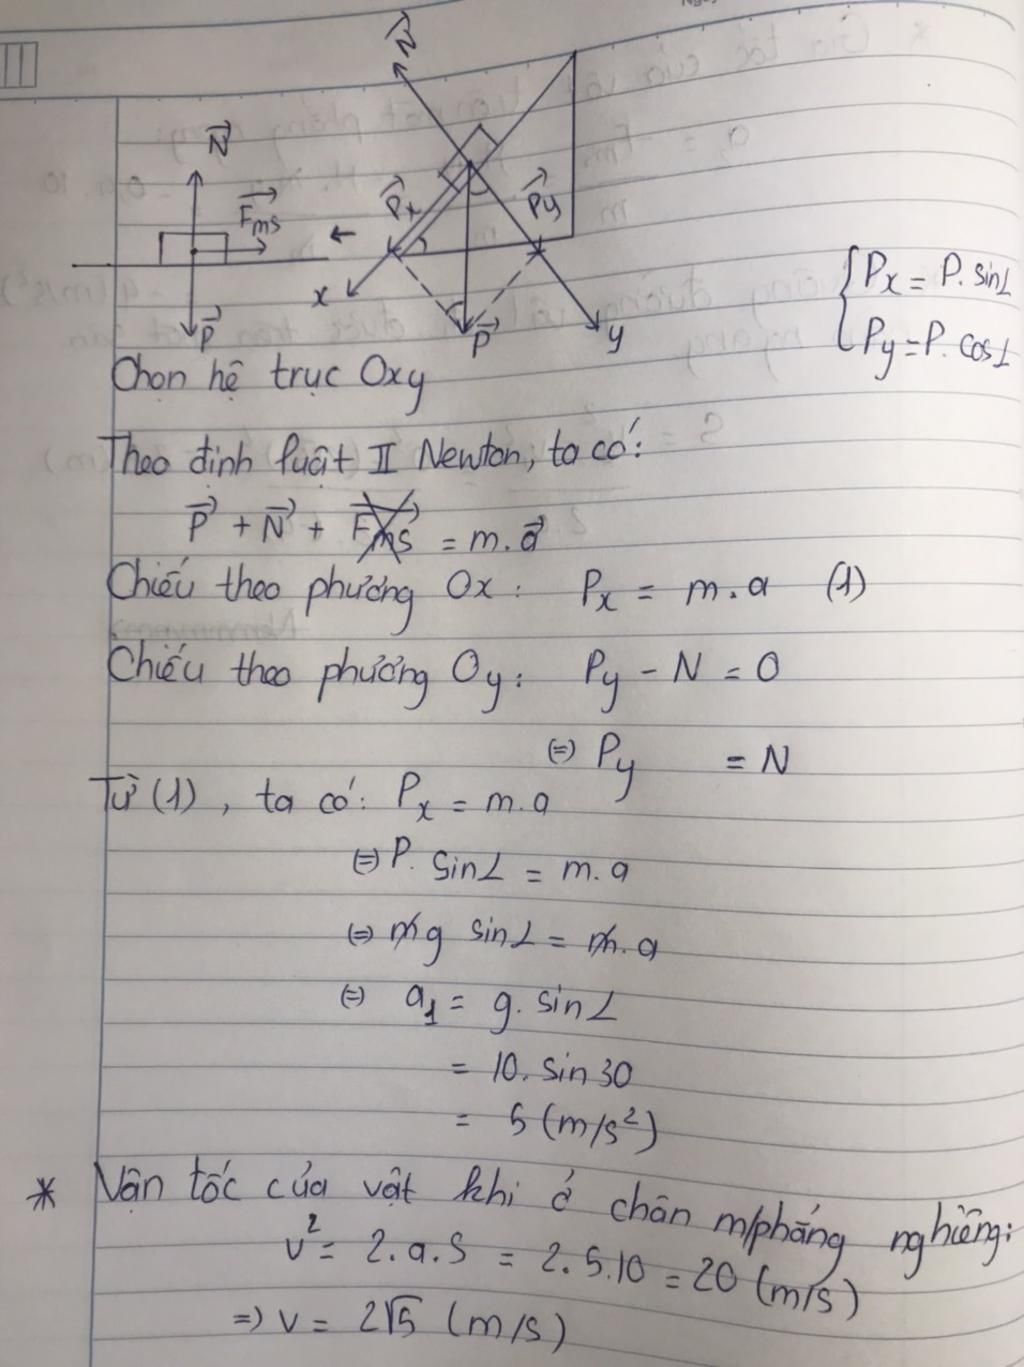 N
N
Fms
Px
Py
x
P
P
y
Px = P. sin∠
Py = P. cos∠
Chọn hệ trục Oxy
Theo định luật II Newton, ta có:
P + N + Fms = m.a
Chiếu theo phương Ox: Px = m.a (1)
Chiếu theo phương Oy: Py - N = 0
(=) Py = N
Từ (1), ta có: Px = m.a
(=) P. sin∠ = m.a
(=) mg sin∠ = m.a
(=) a1 = g. sin∠
= 10. sin 30
= 5 (m/s²)
* Vận tốc của vật khi ở chân m/phẳng nghiêng:
v² = 2.a.S = 2.5.10 = 20 (m/s)
=) v = 2√5 (m/s)